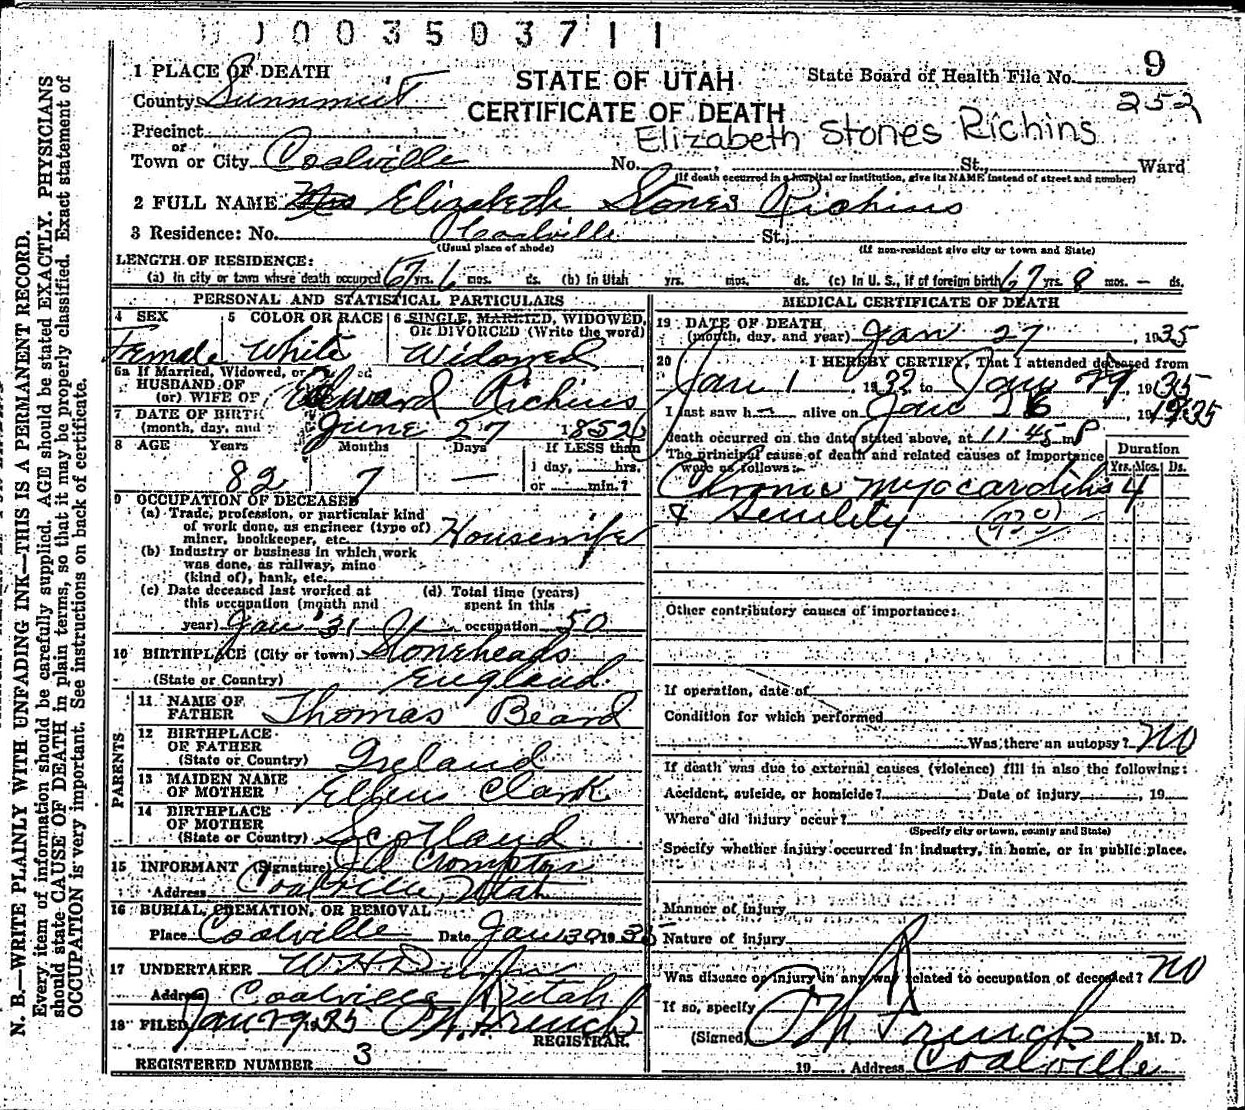 J 0 0 3 5 0 3 7 1 1
9
1 PLACE OF DEATH
STATE OF UTAH
State Board of Health File No.
County Summit
CERTIFICATE OF DEATH
252
Precinct
Elizabeth Stones Richins
or
Town or City Coalville No. St., Ward
(If death occurred in a hospital or institution, give its NAME instead of street and number)
2 FULL NAME Mrs Elizabeth Stones Richins
3 Residence: No. Coalville St.,
(Usual place of abode) (If non-resident give city or town and State)
LENGTH OF RESIDENCE:
(a) In city or town where death occurred 67 yrs. 6 mos. ds. (b) In Utah yrs. mos. ds. (c) In U. S., if of foreign birth 67 yrs. 8 mos. - ds.
PERSONAL AND STATISTICAL PARTICULARS
4 SEX 5 COLOR OR RACE 6 SINGLE, MARRIED, WIDOWED, OR DIVORCED (Write the word)
Female White Widowed
6a If Married, Widowed, or
HUSBAND OF
(or) WIFE OF Edward Richins
7 DATE OF BIRTH
(month, day, and June 27 1852
8 AGE Years Months Days If LESS than
1 day, hrs.
82 7 — or min.?
9 OCCUPATION OF DECEASED
(a) Trade, profession, or particular kind
of work done, as engineer (type of)
miner, bookkeeper, etc. Housewife
(b) Industry or business in which work
was done, as railway, mine
(kind of), bank, etc.
(c) Date deceased last worked at
this occupation (month and
year) Jan '31
(d) Total time (years)
spent in this
occupation 50
10 BIRTHPLACE (City or town) Stoneheads
(State or Country) England
PARENTS
11 NAME OF
FATHER Thomas Beard
12 BIRTHPLACE
OF FATHER
(State or Country) Ireland
13 MAIDEN NAME
OF MOTHER Ellen Clark
14 BIRTHPLACE
OF MOTHER
(State or Country) Scotland
15 INFORMANT (Signature) J A Crompton
Address Coalville, Utah
16 BURIAL, CREMATION, OR REMOVAL
Place Coalville Date Jan 30 1935
17 UNDERTAKER W H
Address Coalville Utah
18 FILED Jan 29 1935
REGISTRAR.
REGISTERED NUMBER 3
MEDICAL CERTIFICATE OF DEATH
19 DATE OF DEATH
(month, day, and year) Jan 27, 1935
20 I HEREBY CERTIFY, That I attended deceased from
Jan 1 1932 to Jan 27 1935
I last saw h alive on Jan 26, 1935
death occurred on the date stated above, at 11 45 m P
The principal cause of death and related causes of importance
were as follows:
Duration
Yrs. Mos. Ds.
Chronic myocarditis 4
& Senility (930)
Other contributory causes of importance:
If operation, date of
Condition for which performed
Was there an autopsy? No
If death was due to external causes (violence) fill in also the following:
Accident, suicide, or homicide? Date of injury , 19
Where did injury occur?
(Specify city or town, county and State)
Specify whether injury occurred in industry, in home, or in public place.
Manner of injury
Nature of injury
Was disease or injury in any way related to occupation of deceased? No
If so, specify
(Signed) M. D.
19 Address Coalville
N. B.—WRITE PLAINLY WITH UNFADING INK—THIS IS A PERMANENT RECORD.
Every item of information should be carefully supplied. AGE should be stated EXACTLY. PHYSICIANS
should state CAUSE OF DEATH in plain terms, so that it may be properly classified. Exact statement of
OCCUPATION is very important. See instructions on back of certificate.